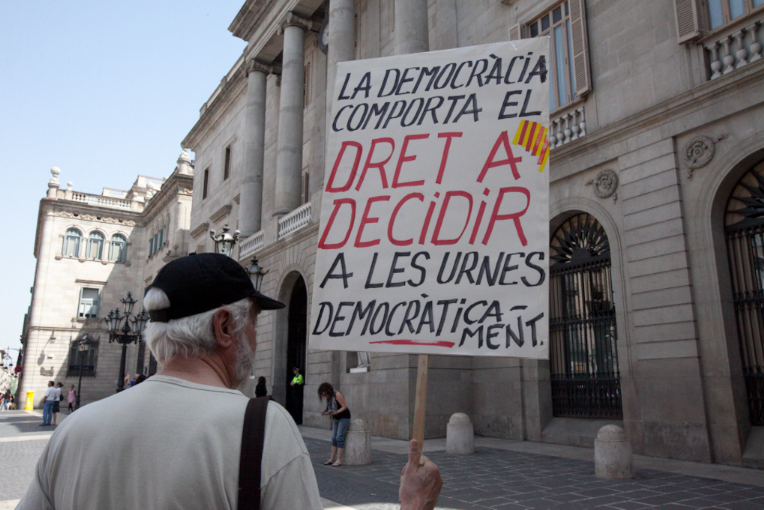 LA DEMOCRÀCIA
COMPORTA EL
DRET A
DECiDiR
A LES URNES
DEMOCRÀTiCA-
MENT.